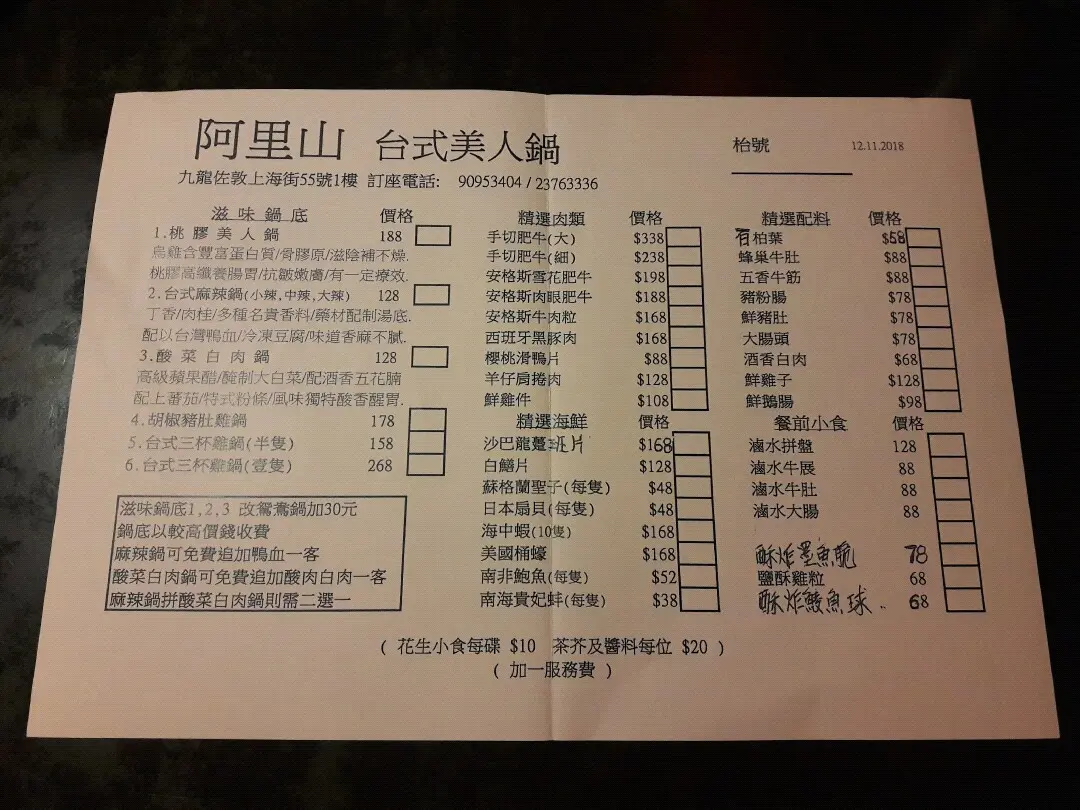 阿里山 台式美人鍋
枱號
12.11.2018
九龍佐敦上海街55號1樓 訂座電話: 90953404 / 23763336
滋味鍋底 價格
1.桃膠美人鍋 188
烏雞含豐富蛋白質/骨膠原/滋陰補不燥.
桃膠高纖養腸胃/抗皺嫩膚/有一定療效.
2.台式麻辣鍋(小辣,中辣,大辣) 128
丁香/肉桂/多種名貴香料/藥材配制湯底.
配以台灣鴨血/冷凍豆腐/味道香麻不膩.
3.酸菜白肉鍋 128
高級蘋果醋/醃制大白菜/配酒香五花腩
配上番茄/特式粉條/風味獨特酸香醒胃.
4.胡椒豬肚雞鍋 178
5.台式三杯雞鍋(半隻) 158
6.台式三杯雞鍋(壹隻) 268
滋味鍋底1,2,3 改鴛鴦鍋加30元
鍋底以較高價錢收費
麻辣鍋可免費追加鴨血一客
酸菜白肉鍋可免費追加酸肉白肉一客
麻辣鍋拼酸菜白肉鍋則需二選一
精選肉類 價格
手切肥牛(大) $338
手切肥牛(細) $238
安格斯雪花肥牛 $198
安格斯肉眼肥牛 $188
安格斯牛肉粒 $168
西班牙黑豚肉 $168
櫻桃滑鴨片 $88
羊仔肩捲肉 $128
鮮雞件 $108
精選海鮮 價格
沙巴龍躉班片 $168
白鱔片 $128
蘇格蘭聖子(每隻) $48
日本扇貝(每隻) $48
海中蝦(10隻) $168
美國桶蠔 $168
南非鮑魚(每隻) $52
南海貴妃蚌(每隻) $38
精選配料 價格
柏葉 $58
蜂巢牛肚 $88
五香牛筋 $88
豬粉腸 $78
鮮豬肚 $78
大腸頭 $78
酒香白肉 $68
鮮雞子 $128
鮮鵝腸 $98
餐前小食 價格
滷水拼盤 128
滷水牛展 88
滷水牛肚 88
滷水大腸 88
酥炸墨魚 78
鹽酥雞粒 68
酥炸鯪魚球 .. 68
( 花生小食每碟 $10 茶芥及醬料每位 $20 )
( 加一服務費 )